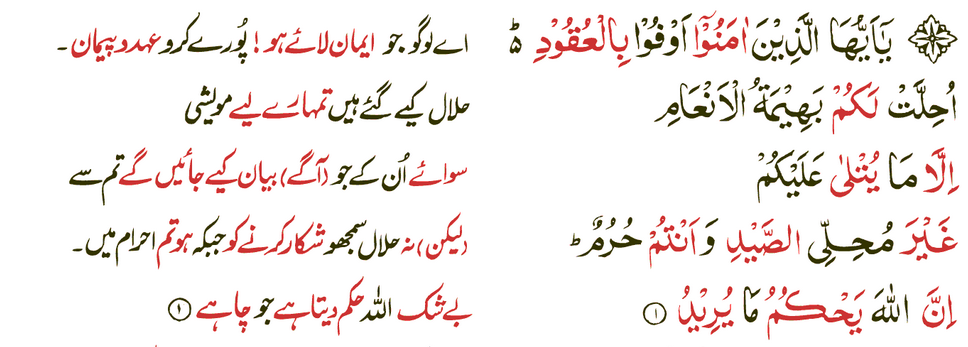 يٰۤاَيُّهَا الَّذِيْنَ اٰمَنُوْۤا اَوْفُوْا بِالْعُقُوْدِ ؕ اے لوگو جو ایمان لائے ہو! پُورے کرو عہد و پیمان۔
اُحِلَّتْ لَكُمْ بَهِيْمَةُ الْاَنْعَامِ حلال کیے گئے ہیں تمہارے لیے مویشی
اِلَّا مَا يُتْلٰى عَلَيْكُمْ سوائے اُن کے جو (آگے) بیان کیے جائیں گے تم سے
غَيْرَ مُحِلِّى الصَّيْدِ وَاَنْتُمْ حُرُمٌ ؕ (لیکن) نہ حلال سمجھو شکار کرنے کو جبکہ ہو تم احرام میں۔
اِنَّ اللّٰهَ يَحْكُمُ مَا يُرِيْدُ ۱ بے شک اللہ حکم دیتا ہے جو چاہے ۱